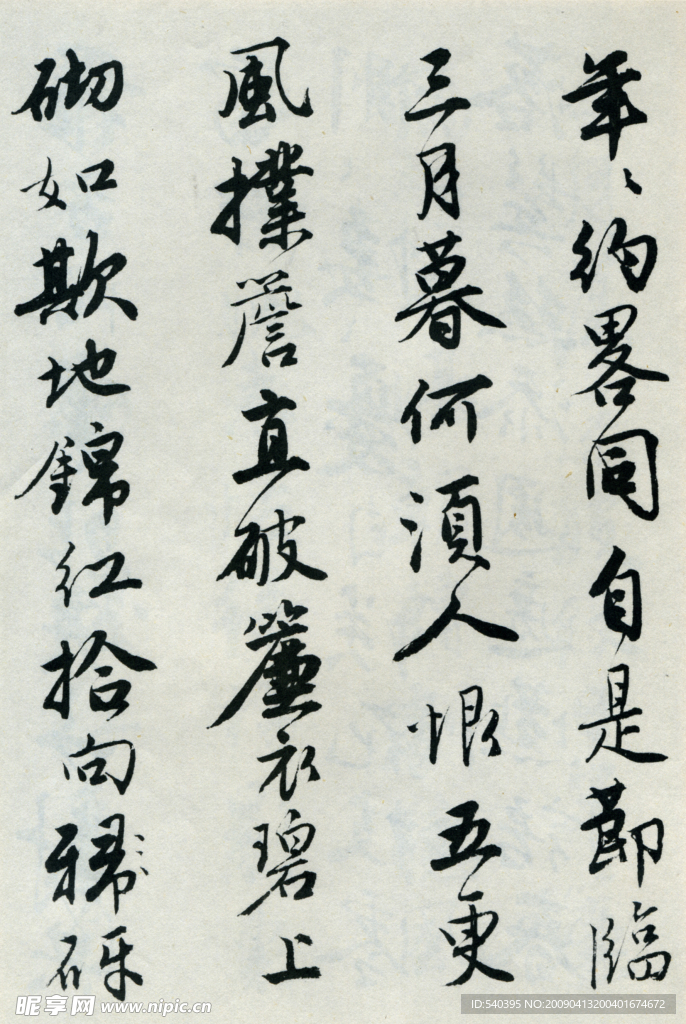 年〻約畧同自是節臨
三月暮何湏人恨五更
風撲簷直破簾衣碧上
砌如欺地錦紅拾向砑
昵享网 www.nipic.cn
ID:540395 NO:20090413200401674672